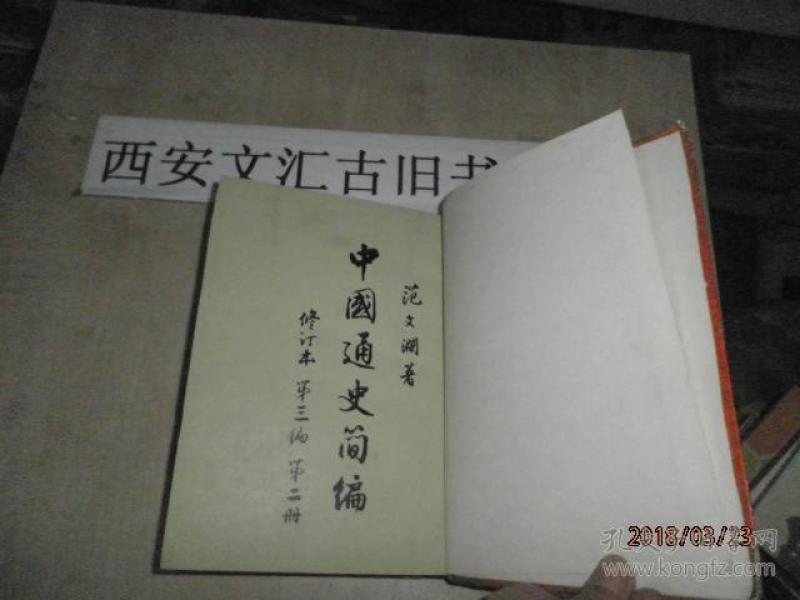 西安文汇古旧书
范文澜著
中國通史简编
修订本 第三编 第二册
2018/03/23
孔夫子旧书网
www.kongfz.com